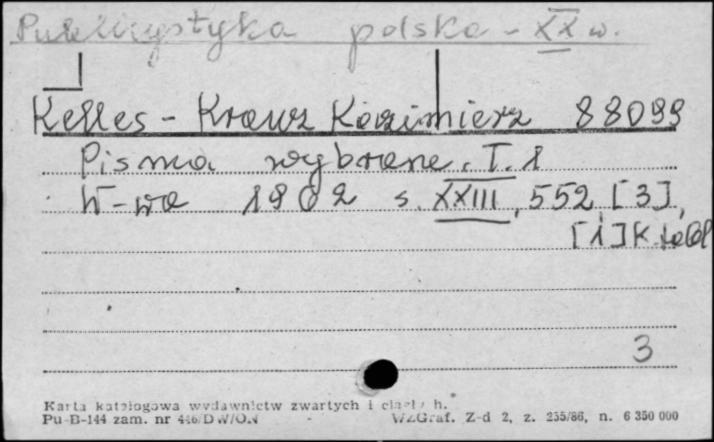 Publicystyka polska - XX w.
Kelles - Krauz Kazimierz 88099
Pisma wybrane. T. 1
W-wa 1962 s. XXIII, 552, [3],
[1] k. tabl
3
Karta katalogowa wydawnictw zwartych i ciągłych.
Pu-B-144 zam. nr 446/DW/ON WZGraf. Z-d 2, z. 255/86, n. 6 350 000